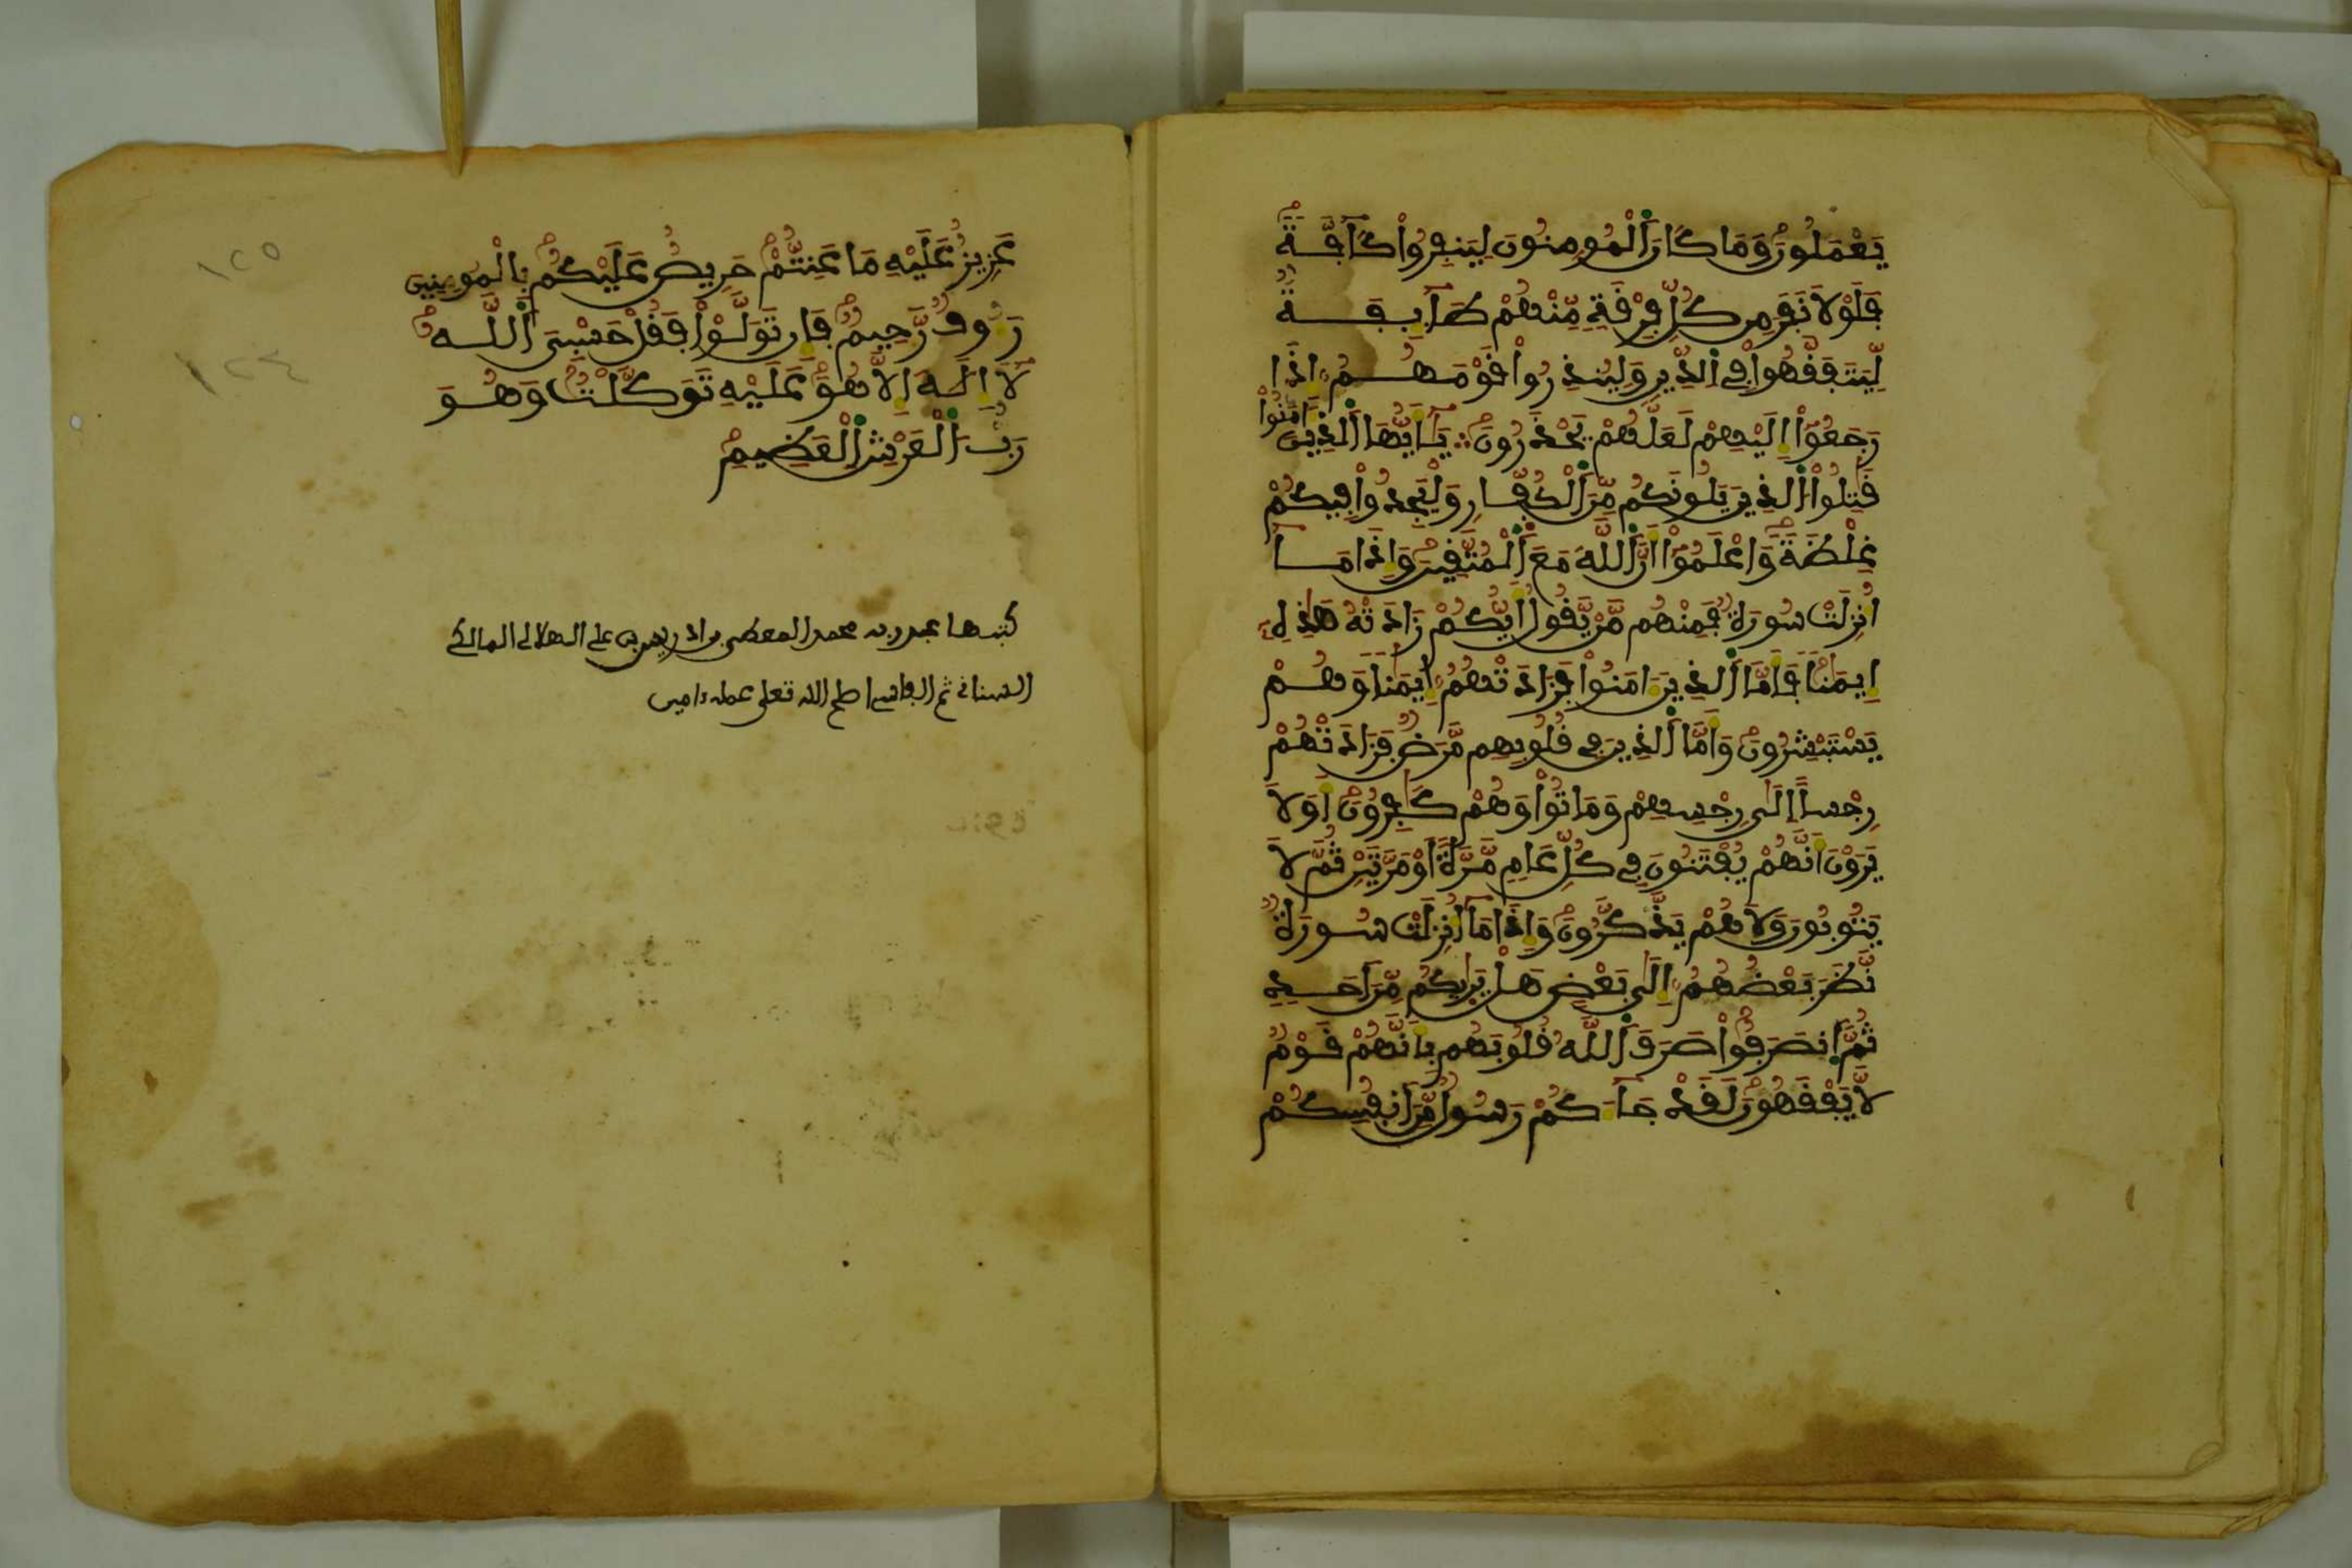 يَعْمَلُونَ وَمَا كَانَ اَلْمُومِنُونَ لِيَنفِرُواْ كَآفَّةً
فَلَوْلَا نَفَرَ مِن كُلِّ فِرْقَةٍ مِّنْهُمْ طَآئِفَةٌ
لِّيَتَفَقَّهُواْ فِي اِلدِّينِ وَلِيُنذِرُواْ قَوْمَهُمُ إِذَا
رَجَعُوٓاْ إِلَيْهِمْ لَعَلَّهُمْ يَحْذَرُونَ ؞ يَٰٓأَيُّهَا اَلذِينَ ءَامَنُواْ
قَٰتِلُواْ اُلذِينَ يَلُونَكُم مِّنَ اَلْكُفّارِ وَلْيَجِدُواْ فِيكُمْ
غِلْظَةً وَاعْلَمُوٓاْ أَنَّ اَللَّهَ مَعَ اَلْمُتَّقِينَ وَإِذَا مَآ
أُنزِلَتْ سُورَةٌ فَمِنْهُم مَّنْ يَّقُولُ أَيُّكُمْ زَادَتْهُ هَٰذِهِۦٓ
إِيمَٰناً فَأَمَّا اَلذِينَ ءَامَنُواْ فَزَادَتْهُمُۥٓ إِيمَٰناً وَهُمْ
يَسْتَبْشِرُونَ وَأَمَّا اَلذِينَ فِي قُلُوبِهِم مَّرَضٌ فَزَادَتْهُمْ
رِجْساً إِلَىٰ رِجْسِهِمْ وَمَاتُواْ وَهُمْ كَٰفِرُونَ أَوَلَا
يَرَوْنَ أَنَّهُمْ يُفْتَنُونَ فِي كُلِّ عَامٍ مَّرَّةً أَوْ مَرَّتَيْنِ ثُمَّ لَا
يَتُوبُونَ وَلَا هُمْ يَذَّكَّرُونَ وَإِذَا مَآ أُنزِلَتْ سُورَةٌ
نَّظَرَ بَعْضُهُمُۥٓ إِلَىٰ بَعْضٍ هَلْ يَرَىٰكُم مِّنَ اَحَدٍ
ثُمَّ اَنصَرَفُواْ صَرَفَ اَللَّهُ قُلُوبَهُم بِأَنَّهُمْ قَوْمٌ
لَّا يَفْقَهُونَ لَقَدْ جَآءَكُمْ رَسُولٌ مِّنَ اَنفُسِكُمْ
عَزِيزٌ عَلَيْهِ مَا عَنِتُّمْ حَرِيصٌ عَلَيْكُم بِالْمُومِنِينَ
رَءُوفٌ رَّحِيمٌ فَإِن تَوَلَّوْاْ فَقُلْ حَسْبِيَ اَللَّهُ
لَآ إِلَٰهَ إِلَّا هُوَ عَلَيْهِ تَوَكَّلْتُ وَهُوَ
رَبُّ اَلْعَرْشِ اِلْعَظِيمِ
كتبها عبد ربه محمد المعطي بن ادريس بن علي الهلالي المالكي
ثم الفاسي اصلح الله تعلى عمله ءامين
١٢٥
١٢٤